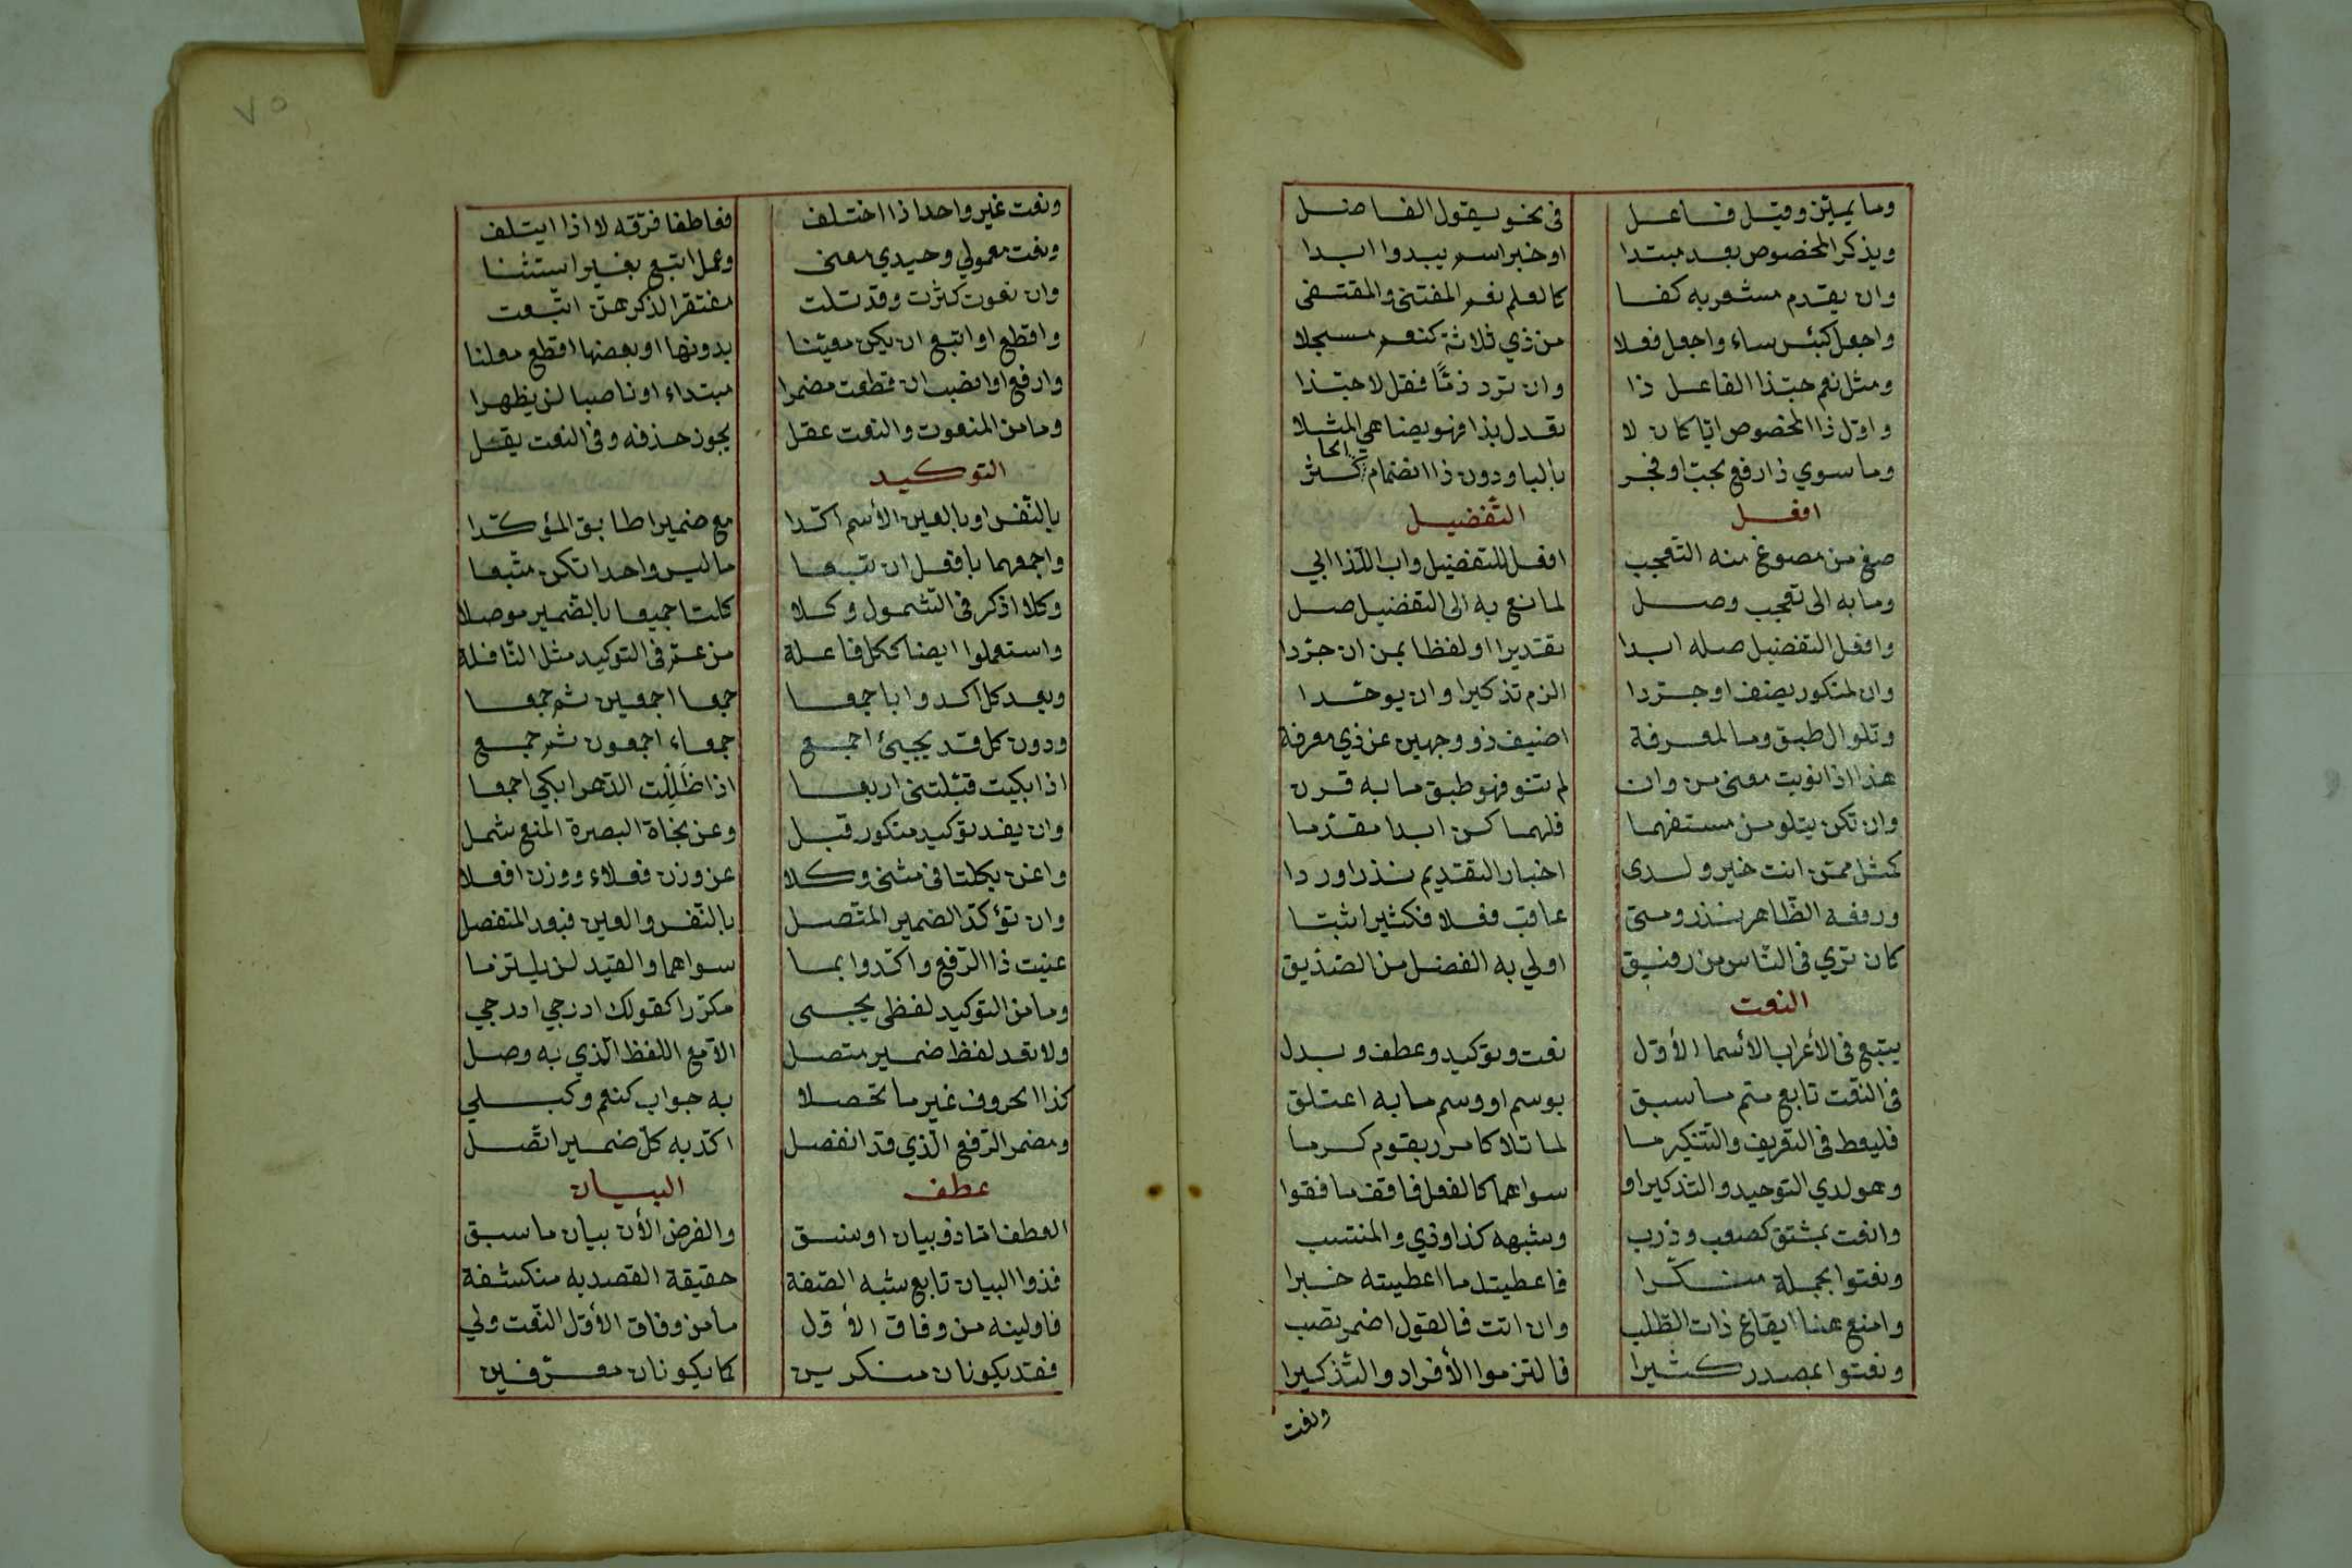 وما يميّز وقيل فاعل في نحو يقول الفاضل
ويذكر المخصوص بعد مبتدا او خبر اسم يبدوا ابدا
وان يقدم مشعر به كفا كالعلم نعم المقتنى والمقتفى
واجعل كبئس ساء واجعل فعلا من ذي ثلاثة كنعم مسجلا
ومثل نعم حبّذا الفاعل ذا وان ترد ذمًّا فقل لا حبّذا
واوّل ذا المخصوص ايّا كان لا تعدل بذا فهو يضاهي المثلا
وما سوي ذا ارفع بحبّ او فجر بالبا ودون ذا انضمام الحا كثر
افعل التّفضيل
صغ من مصوغ منه التعجب افعل للتفضيل واب اللّذ ابي
وما به الى تعجب وصل لمانع به الى التفضيل صل
وافعل التفضيل صله ابدا تقديرا او لفظا بمن ان جرّدا
وان لمنكور يضف او جرّدا الزم تذكيرا وان يوحّدا
وتلو ال طبق وما لمعرفة اضيف ذو وجهين عن ذي معرفة
هذا اذا نويت معنى من وان لم تنو فهو طبق ما به قرن
وان تكن بتلو من مستفهما فلهما كن ابدا مقدّما
كمثل ممّن انت خير ولدى اخبار التقديم نذرا وردا
ورفعه الظّاهر نذر ومتى عاقب فعلا فكثيرا ثبتا
كان تري في النّاس من رفيق اولي به الفضل من الصّديق
النعت
يتبع في الأعراب الأسما الأوّل نعت وتوكيد وعطف وبدل
في النّعت تابع متم ما سبق بوسم او وسم ما به اعتلق
فليعط في التعريف والتّنكير ما لما تلا كامرر بقوم كرما
وهو لدي التوحيد والتذكير او سواهما كالفعل فاقف ما قفوا
وانعت بمشتق كصعب وذرب وشبهه كذا وذي والمنتسب
ونعتوا بجملة منكّرا فاعطيت ما اعطيته خبرا
وامنع هنا ايقاع ذات الطّلب وان اتت فالقول اضمر تصب
ونعتوا بمصدر كثيرا فالتزموا الأفراد والتّذكيرا
ونعت
٧٥
ونعت غير واحد اذا اختلف فعاطفا فرّقه لا اذا ايتلف
ونعت معمولي وحيدي معنى وعمل اتبع بغير استثنا
وان نعوت كثرت وقد تلت مفتقرا لذكرهنّ اتبعت
واقطع او اتبع ان يكن معيّنا بدونها او بعضها اقطع معلنا
وارفع او انصب ان قطعت مضمرا مبتداء او ناصبا لن يظهرا
وما من المنعوت والنعت عقل يجوز حذفه وفي النعت يقل
التوكيد
بالنّفس او بالعين الأسم اكّدا مع ضمير طابق المؤكّدا
واجمعهما بافعل ان تبعا ما ليس واحدا تكن متّبعا
وكلا اذكر في الشّمول وكلا كلتا جميعا بالضّمير موصلا
واستعملوا ايضا ككل فاعلة من عمّ في التوكيد مثل النّافلة
وبعد كل اكدوا باجمعا جمعا اجمعين ثم جمعا
ودون كل قد يجيئ اجمع جمعاء اجمعون ثم جمع
اذا بكيت قبّلتني اربعا اذا ظَلِلت الدّهر ابكي اجمعا
وان يفد توكيد منكور قبل وعن نحاة البصرة المنع شمل
واغن بكلتا في مثنى وكلا عن وزن فعلاء ووزن افعلا
وان تؤكّد الضمير المتّصل بالنّفس والعين فبعد المنفصل
عنيت ذا الرّفع واكّدوا بما سواهما والقيد لن يلتزما
وما من التوكيد لفظي يجي مكرّرا كقولك ادرجي ادرجي
ولا تعد لفظ ضمير متصل الّا مع اللفظ الّذي به وصل
كذا الحروف غير ما تحصلا به جواب كنعم وكبلي
ومضمر الرّفع الّذي قد انفصل اكّد به كلّ ضمير اتّصل
عطف البيان
العطف امّا ذو بيان او نسق والغرض الأن بيان ما سبق
فذوا البيان تابع شبه الصّفة حقيقة القصد به منكشفة
فاولينه من وفاق الأوّل ما من وفاق الأوّل النّعت ولي
فقد يكونان منكرين كما يكونان معرّفين